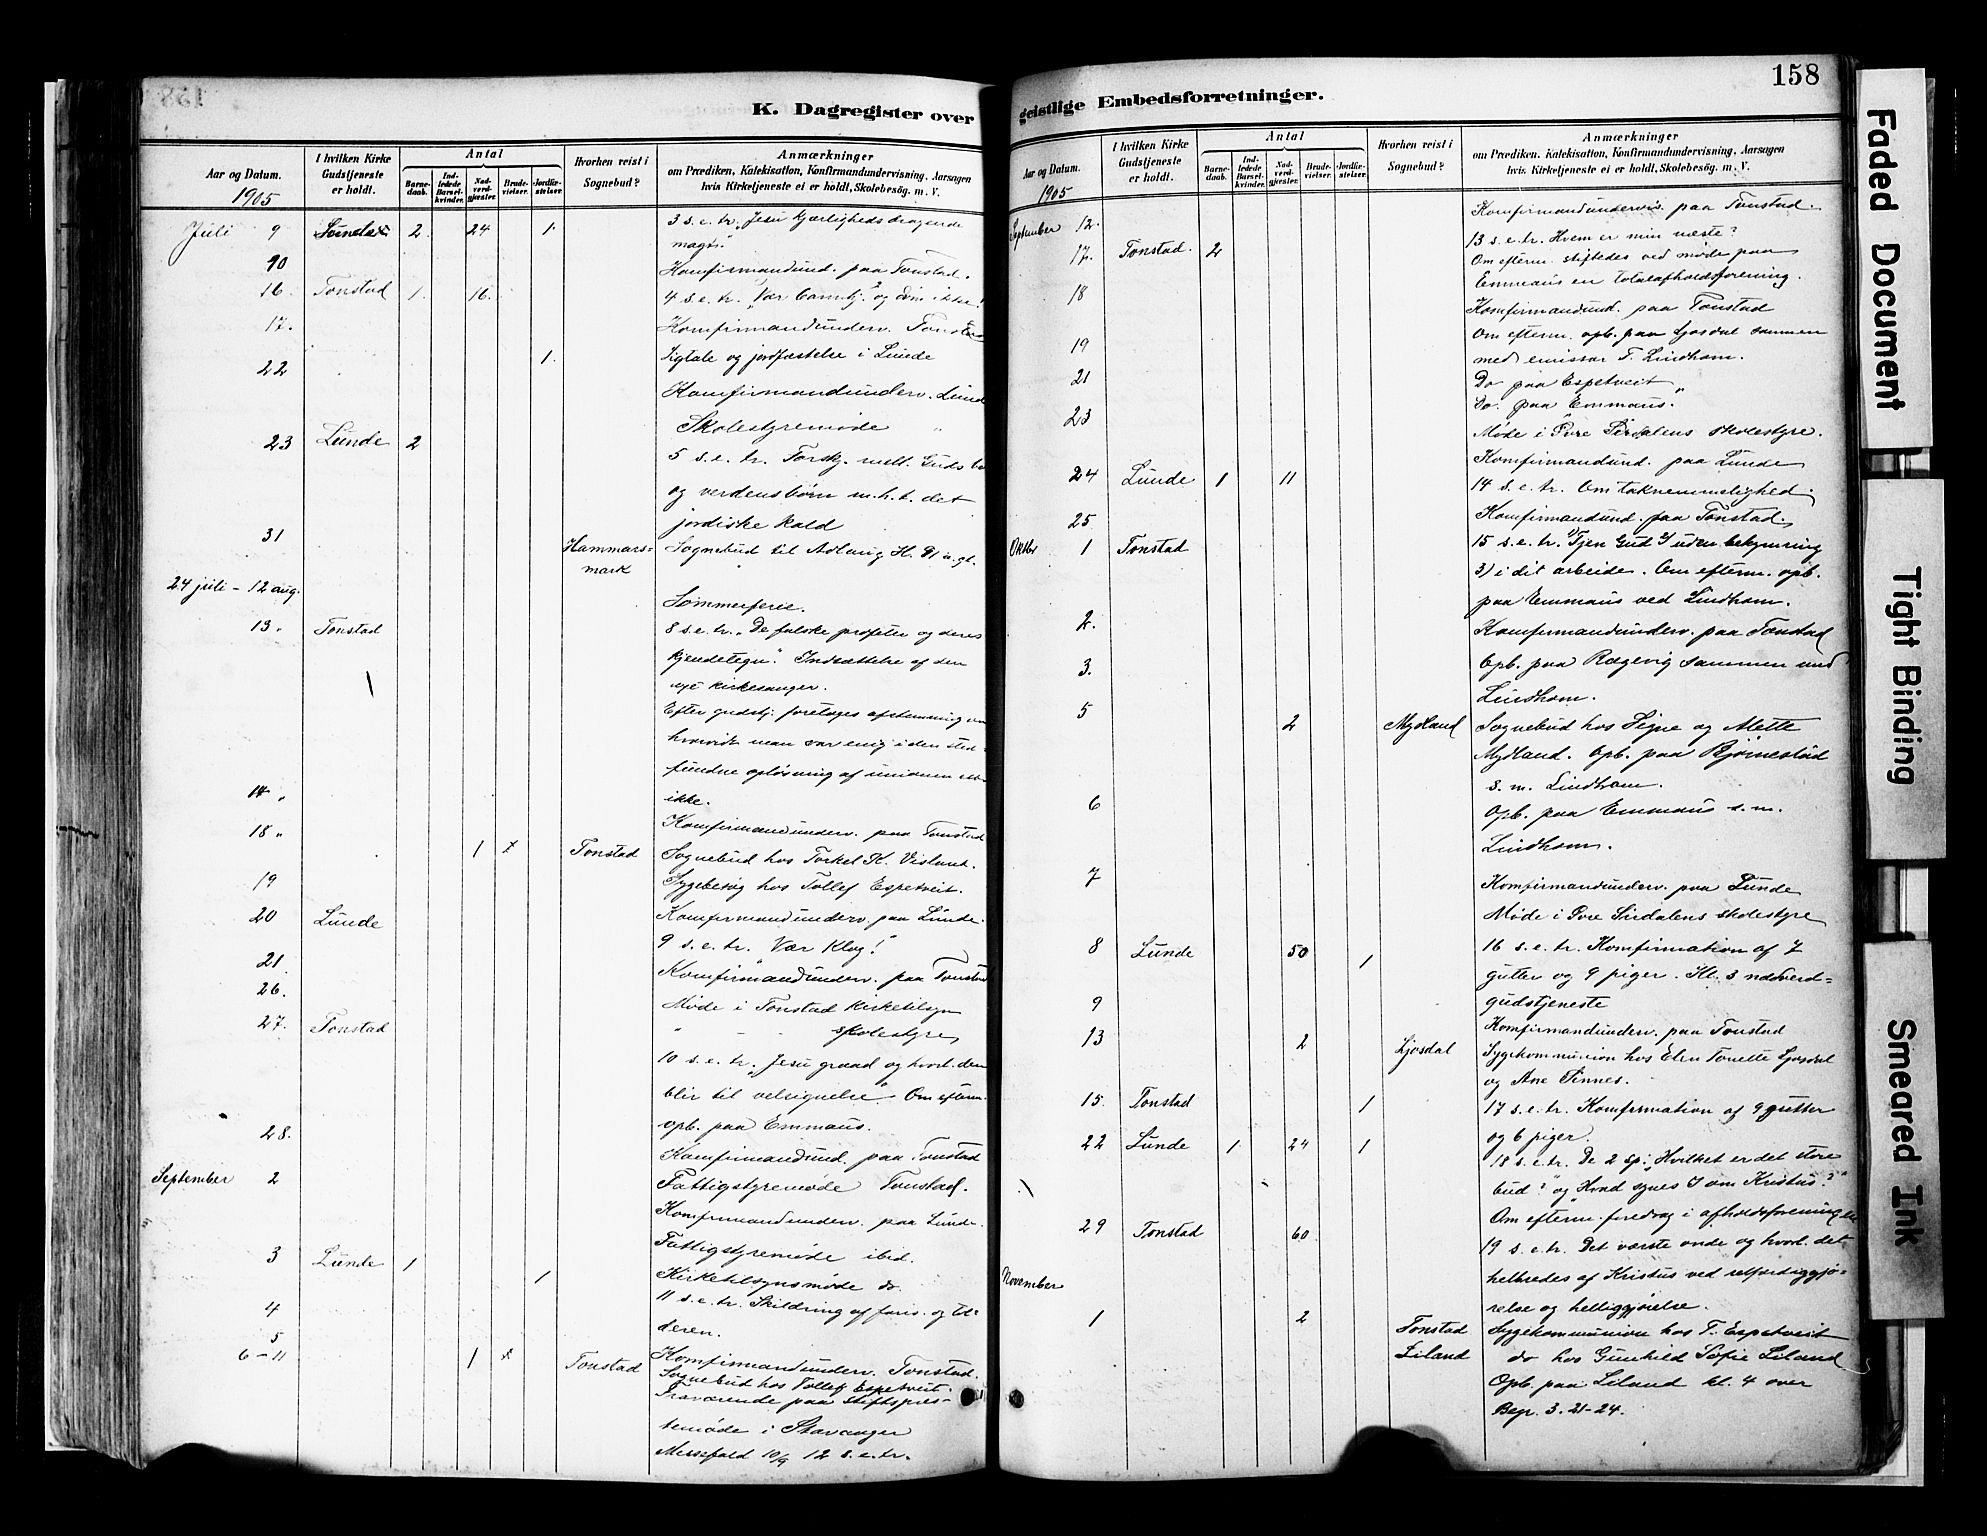 K. Dagregister over
Aar og Datum.
1905
I hvilken Kirke
Gudstjeneste
er holdt.
Antal
Barne-
daab.
Ind-
ledede
Barsel-
kvinder.
Nad-
verd-
gjæster.
Brude-
vielser.
Jordfæ-
stelser.
Hvorhen reist i
Sognebud?
Anmærkninger
om Prædiken, Katekisation, Konfirmandundervisning, Aarsagen
hvis Kirketjeneste ei er holdt, Skolebesøg. m. V.
Juli 9 2 24 1. 3 s.e.tr. "Jesu kjærligheds dragende
magt."
10 Konfirmandund. paa Tonstad.
16. Tonstad 1. 16. 4 s.e.tr. "Vær og døm ikke!
17. Konfirmandunderv. Tonstad
22 1. Ligtale og jordfæstelse i Lunde
Konfirmandunderv. Lunde
Skolestyremøde "
23 Lunde 2 5 s.e.tr. Forskj. mell. Guds
og verdensbørn m.h.t. det
jordiske kald
31 Hammars-
mark Sognebud til H.
24 juli - 12 aug. Sommerferie.
13. Tonstad 8 s.e.tr. "De falske profeter og deres
kjendetegn". Indsættelse af den
nye kirkesanger.
Efter gudstj. foretoges afstemning om
hvorvidt man var enig i den sted-
fundne opløsning af unionen
ikke.
14 " Konfirmandunderv. paa Tonstad
18 " 1 x Tonstad Sognebud hos Torkel K. Visland.
Sygebesøg hos Tollef Espetveit.
19 Konfirmandunderv. paa Lunde.
20 Lunde 9 s.e.tr. "Vær klog!"
21 Konfirmandunderv. paa Tonstad
26. Møde i Tonstad kirketilsyn
" - - skolestyre
27. Tonstad 10 s.e.tr. "Jesu graad og hvorl. den
blir til velsignelse". Om efterm.
opb. paa Emmaus.
28. Konfirmandund. paa Tonstad
September 2 Fattigstyremøde Tonstad.
Konfirmandunderv. paa Lunde.
Fattigstyremøde ibid.
Kirketilsynsmøde do.
3 Lunde 1 1 11 s.e.tr. Skildring af faris. og tol-
deren.
4 Konfirmandunderv. Tonstad.
5 1 x Tonstad Sognebud hos Tollef Espetveit.
6-11 Fraværende paa stiftspres-
temøde i Stavanger
Messefald 10/9 12 s.e.tr.
geistlige Embedsforretninger.
158
Aar og Datum.
1905
I hvilken Kirke
Gudstjeneste
er holdt.
Antal
Barne-
daab.
Ind-
ledede
Barsel-
kvinder.
Nad-
verd-
gjæster.
Brude-
vielser.
Jordfæ-
stelser.
Hvorhen reist i
Sognebud?
Anmærkninger
om Prædiken, Katekisation, Konfirmandundervisning, Aarsagen
hvis Kirketjeneste ei er holdt, Skolebesøg. m. V.
September 12. Konfirmandundervis. paa Tonstad.
17. Tonstad. 2 13 s.e.tr. Hvem er min næste?
Om efterm. stiftedes ved møde paa
Emmaus en totalafholdsforening.
18 Konfirmandund. paa Tonstad
19 Om efterm. opb. paa Josdal sammen
med emissær T. Lindham.
21 Do paa Espetveit "
23 Do. paa Emmaus. "
Møde i Øvre Sirdalens skolestyre.
Konfirmandund. paa Lunde
24 Lunde 1 11 14 s.e.tr. Om taknemmelighed.
25 Konfirmandund. paa Tonstad.
Oktbr 1 Tonstad 15 s.e.tr. Tjen Gud uden bekymring
3) i dit arbeide. Om efterm. opb.
paa Emmaus ved Lindham.
2. Konfirmandunderv. paa Tonstad
3. Opb. paa Rægevig sammen med
Lindham.
5 2 Mydland Sognebud hos Signe og Mette
Mydland. Opb. paa Bjørnestad
s.m. Lindham.
6 Opb. paa Emmaus s.m.
Lindham.
7 Konfirmandunderv. paa Lunde
Møde i Øvre Sirdalens skolestyre
8 Lunde 50 1 16 s.e.tr. Konfirmation af 7
gutter og 9 piger. Kl. 3 nadverd-
gudstjeneste
9 Konfirmandunderv. paa Tonstad
13 2 Ljosdal Sygekommunion hos Elen Tonette Josdal
og Ane Finnes.
15. Tonstad 1 17 s.e.tr. Konfirmation af 9 gutter
og 6 piger.
22 Lunde 1 24 1 18 s.e.tr. De 2 sp: "Hvilket er det store
bud?" og "Hvad synes I om Kristus?"
Om efterm. foredrag i afholdsforeningen
29 Tonstad 60 19 s.e.tr. Det værste onde og hvorl. det
helbredes af Kristus ved retfærdiggjø-
relse og helliggjørelse.
November
1 2 Tonstad Sygekommunion hos T. Espetveit
Liland do hos Gunhild Sofie Liland
Opb. paa Liland kl. 4 over
3. 21-24.
Faded Document
Tight Binding
Smeared Ink